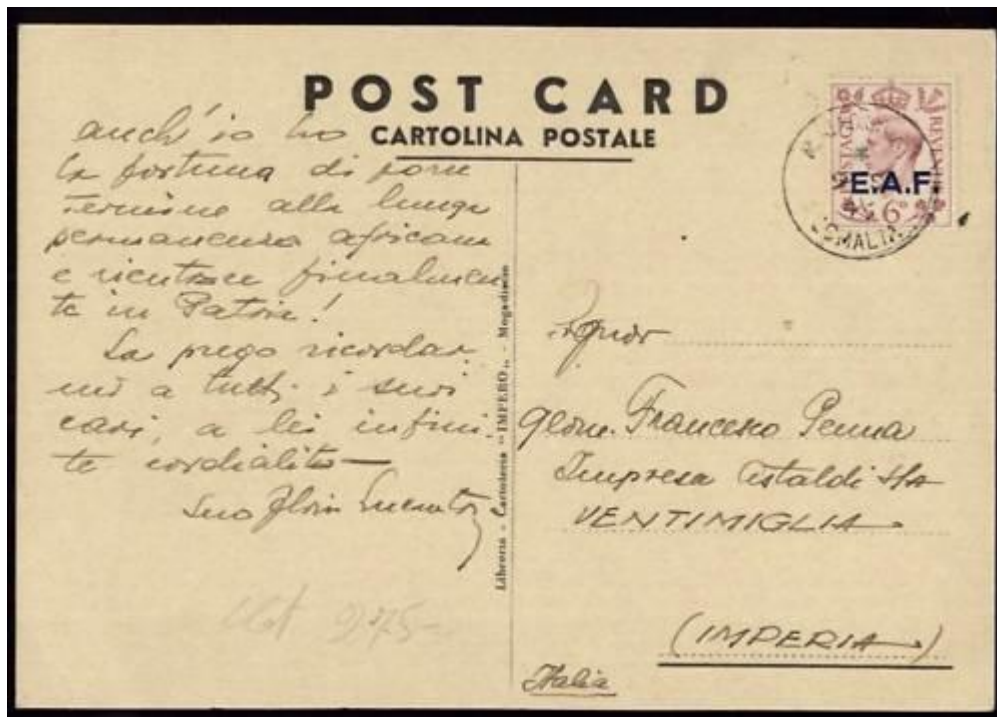 POST CARD
CARTOLINA POSTALE
anch'io ho
la fortuna di porre
termine alla lunga
permanenza africana
e rientrare finalmen
te in Patria!
La prego ricordar
mi a tutti i suoi
cari, a lei infini-
te cordialità
Suo
Libreria - Cartoleria "IMPERO" - Mogadiscio
POSTAGE REVENUE
E.A.F.
6D
SOMALIA
Signor
geom. Francesco Penna
Impresa Astaldi S/A
VENTIMIGLIA
(IMPERIA)
Italia